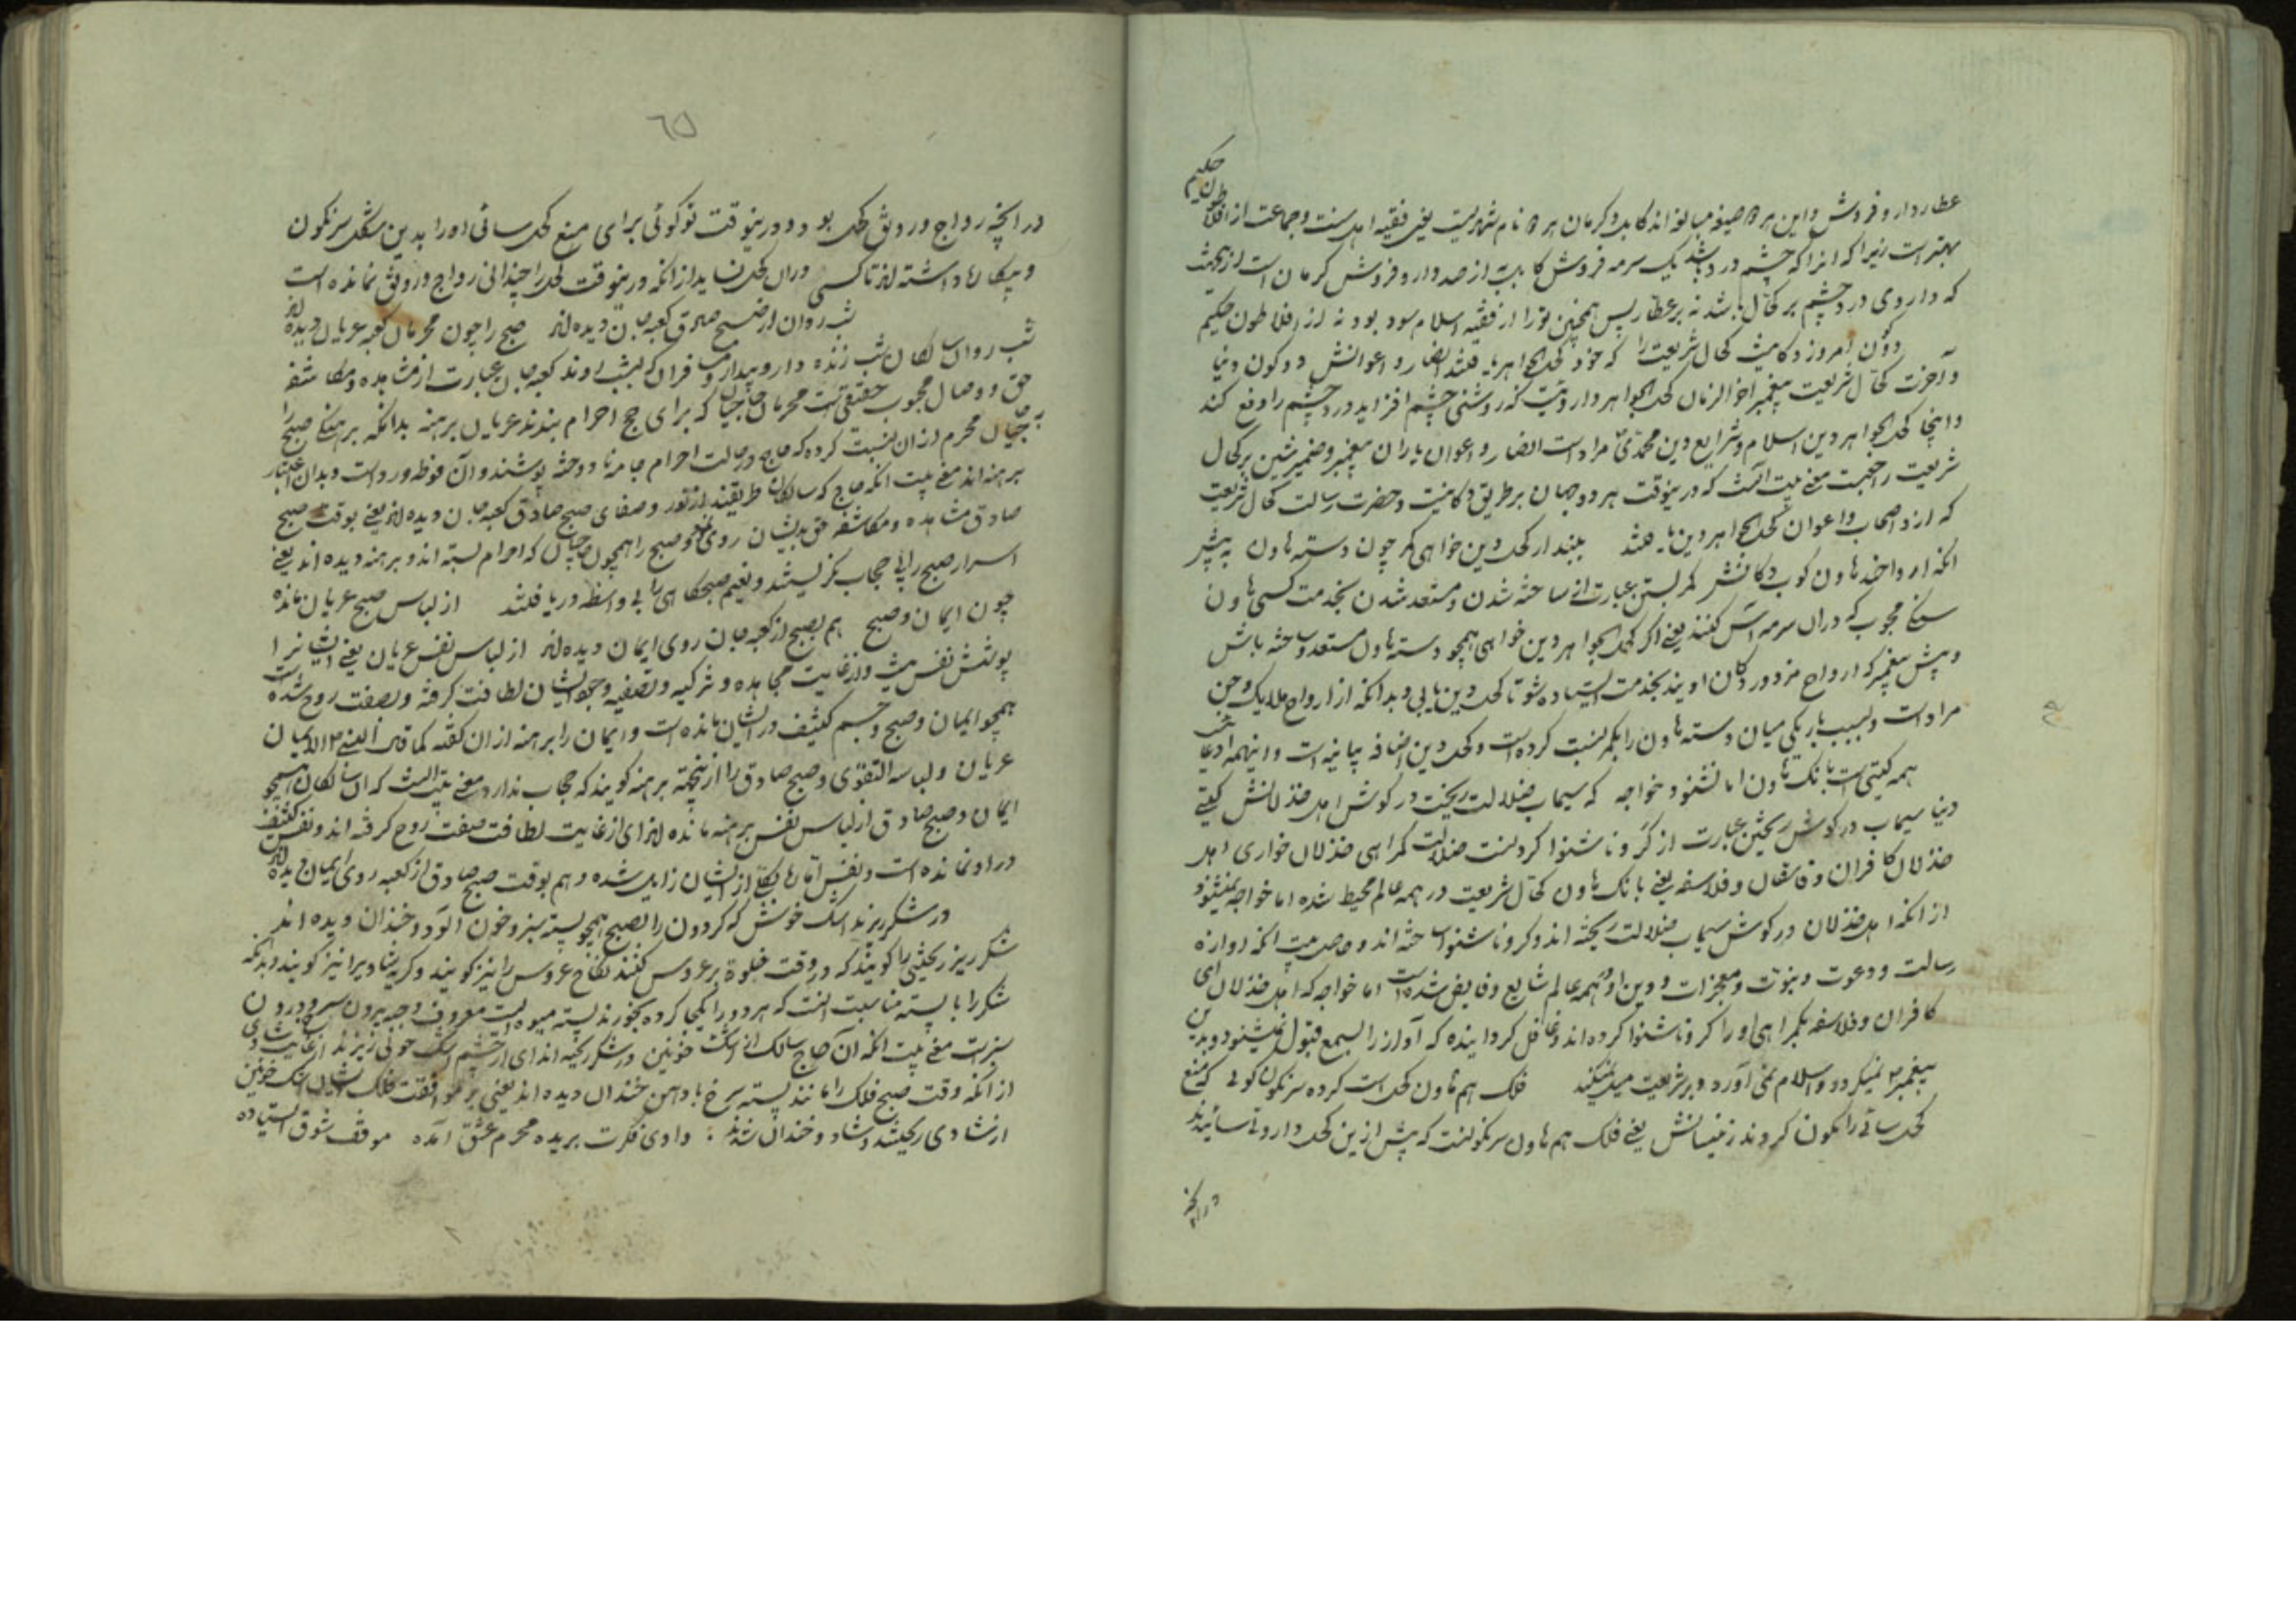 حکیم
عطار دارو فروش و این هر دو صیغه مبالغه اند کابد و کرمان هر دو نام شهریست یعنی فقیه اهل سنت و جماعت از افلاطون
بهتر است زیرا که انرا که چشم درد باشد یک سرمه فروش کابد به از صد دارو فروش کرمان است از بهت
که داروی درد چشم بر کحال باشد نه بر عطار پس همچنین تو را از فقیه اسلام سود بود نه از افلاطون حکیم
دو کون امروز دکانیست کحال شریعت را که خود کحل الجواهر یافتند انصار و اعوانش دو کون دنیا
و آخرت کحال شریعت پیغمبر اخر الزمان کحل الجواهر داروئیست که روشنی چشم افزاید و درد چشم را دفع کند
و اینجا کحل الجواهر دین اسلام و شرایع دین محمدی مراد است انصار و اعوان یاران پیغمبر و ضمیر شین بر کحال
شریعت راجعست معنی بیت آنست که درینوقت هر دو جهان بر طریق دکانیست و حضرت رسالت کحال شریعت
که ازو اصحاب و اعوان کحل الجواهر دین یافتند ببند ار کحل دین خواهی کمر چون دسته هاون به پیش
انکه ارواحند هاون کوب دکانش کمر بستن عبارت از ساخته شدن و مستعد شدن بخدمت کسی هاون
سنگ مجوب که دران سرمه اس کنند یعنی اگر کحل الجواهر دین خواهی همچو دسته هاون مستعد و ساخته باش
و پیش پیغمبر که ارواح مزدور دکان اویند بخدمت ایستاده شو تا کحل دین یابی و بدانکه از ارواح ملایک و جن
مراد است و بسبب باریکی میان دسته هاون را بکمر نسبت کرده است و کحل دین اضافه بیانیه است و اینهمه ادعا
همه گیتی است بانک هاون اما نشنود خواجه که سیماب ضلالت ریخت در کوش اهل خذلانش گیتی
دنیا سیماب در کوش ریختن عبارت از کر و ناشنوا کردنست ضلالت گمراهی خذلان خواری اهل
خذلان کافران و فاسقان و فلاسفه یعنی بانک هاون کحال شریعت در همه عالم محیط شده اما خواجه نمیشنود
از انکه اهل خذلان در کوش سیماب ضلالت ریخته اند و کر و ناشنوا ساخته اند و حاصل بیت انکه اوازه
رسالت و دعوت و نبوت و معجزات و دین او بهمه عالم شایع و فایض شده است اما خواجه که اهل خذلان ای
کافران و فلاسفه بگمراهی او را کر و ناشنوا کرده اند و غافل کردانیده که آواز را بسمع قبول نمیشنود و بدین
پیغمبر نمیکرود و اسلام نمی آورد و بر شریعت میل نمیکند فلک هم هاون کحل است کرده سرنکون کوئی که منع
کحل سائی را نکون کردند زینسانش یعنی فلک هم هاون سرنکونست که پیش ازین کحل دارو می سائیدند
در انچه
٦٥
در انچه رواج و رونق کحل بود و درینوقت تو کوئی برای منع کحل سائی او را بدین شکل سرنکون
و بیکار داشته اند تا کسی دران کحل نساید از انکه درینوقت کحل را چندانی رواج و رونق نمانده است
شب روان از صبح صادق کعبه جان دیده اند صبح را چون محرمان کعبه عریان دیده اند
شب روان سالکان شب زنده دار و بیدار و مسافران که بشب روند کعبه جان عبارت از مشاهده و مکاشفه
حق و وصال محبوب حقیقی است محرمان حاجیان که برای حج احرام بندند عریان برهنه بدانکه برهنگی صبح را
به حاجیان محرم ازان نسبت کرده که حاج در حالت احرام جامه نا دوخته پوشند و آن فوطه و رداست و بدان اعتبار
برهنه اند معنی بیت انکه حاج که سالکان طریقند از نور و صفای صبح صادق کعبه جان دیده اند یعنی بوقت صبح
صادق مشاهده و مکاشفه حق بدیشان روی نمود و صبح را همچون حاجیان که احرام بسته اند و برهنه دیده اند یعنی
اسرار صبح را بی حجاب نگریستند و نعیم صبحکاهی را بی واسطه دریافتند از لباس صبح عریان مانده
چون ایمان و صبح هم بصبح از کعبه جان روی ایمان دیده اند از لباس نفس عریان یعنی ایشانرا
پوشش نفس نیست و از غایت مجاهده و تزکیه و تصفیه وجود ایشان لطافت گرفته و بصفت روح شده است
همچو ایمان و صبح و جسم کثیف در ایشان نمانده است و ایمان را برهنه ازان گفته کما قال النبی الایمان
عریان و لباسه التقوی و صبح صادق را ازینجهة برهنه گویند که حجاب ندارد معنی بیت انست که ان سالکان همچو
ایمان و صبح صادق از لباس نفس برهنه مانده اند ای از غایت لطافت صفت روح گرفته اند و نفس کثیف
در او نمانده است و نفس اماره بکلی از ایشان زایل شده و هم بوقت صبح صادق از کعبه روی ایمان دیده اند
در شکر ریزند اشک خوش که گردون را بصبح همچو پسته سبز و خون آلود و خندان دیده اند
شکر ریز ریختنی را گویند که در وقت خلوة بر عروس کنند نکاح عروس را نیز گویند و گریه شادی را نیز گویند و بدانکه
شکر را با پسته مناسبت انست که هر دو را یکجا کرده بخورند پسته میوه ایست معروف و چه بیرون سرخ و درون
سبز است معنی بیت انکه آن حاج سالک از اشک خونین در شکر ریخته اند ای از چشم اشک خونی ریزند از غایت شادی
از انکه وقت صبح فلک را مانند پسته سرخ با دهن خندان دیده اند یعنی بر موافقت فلک ایشان اشک خونین
از شادی ریختند و شاد و خندان شدند وادی فکرت بریده محرم عشق آمده موقف شوق ایستاده